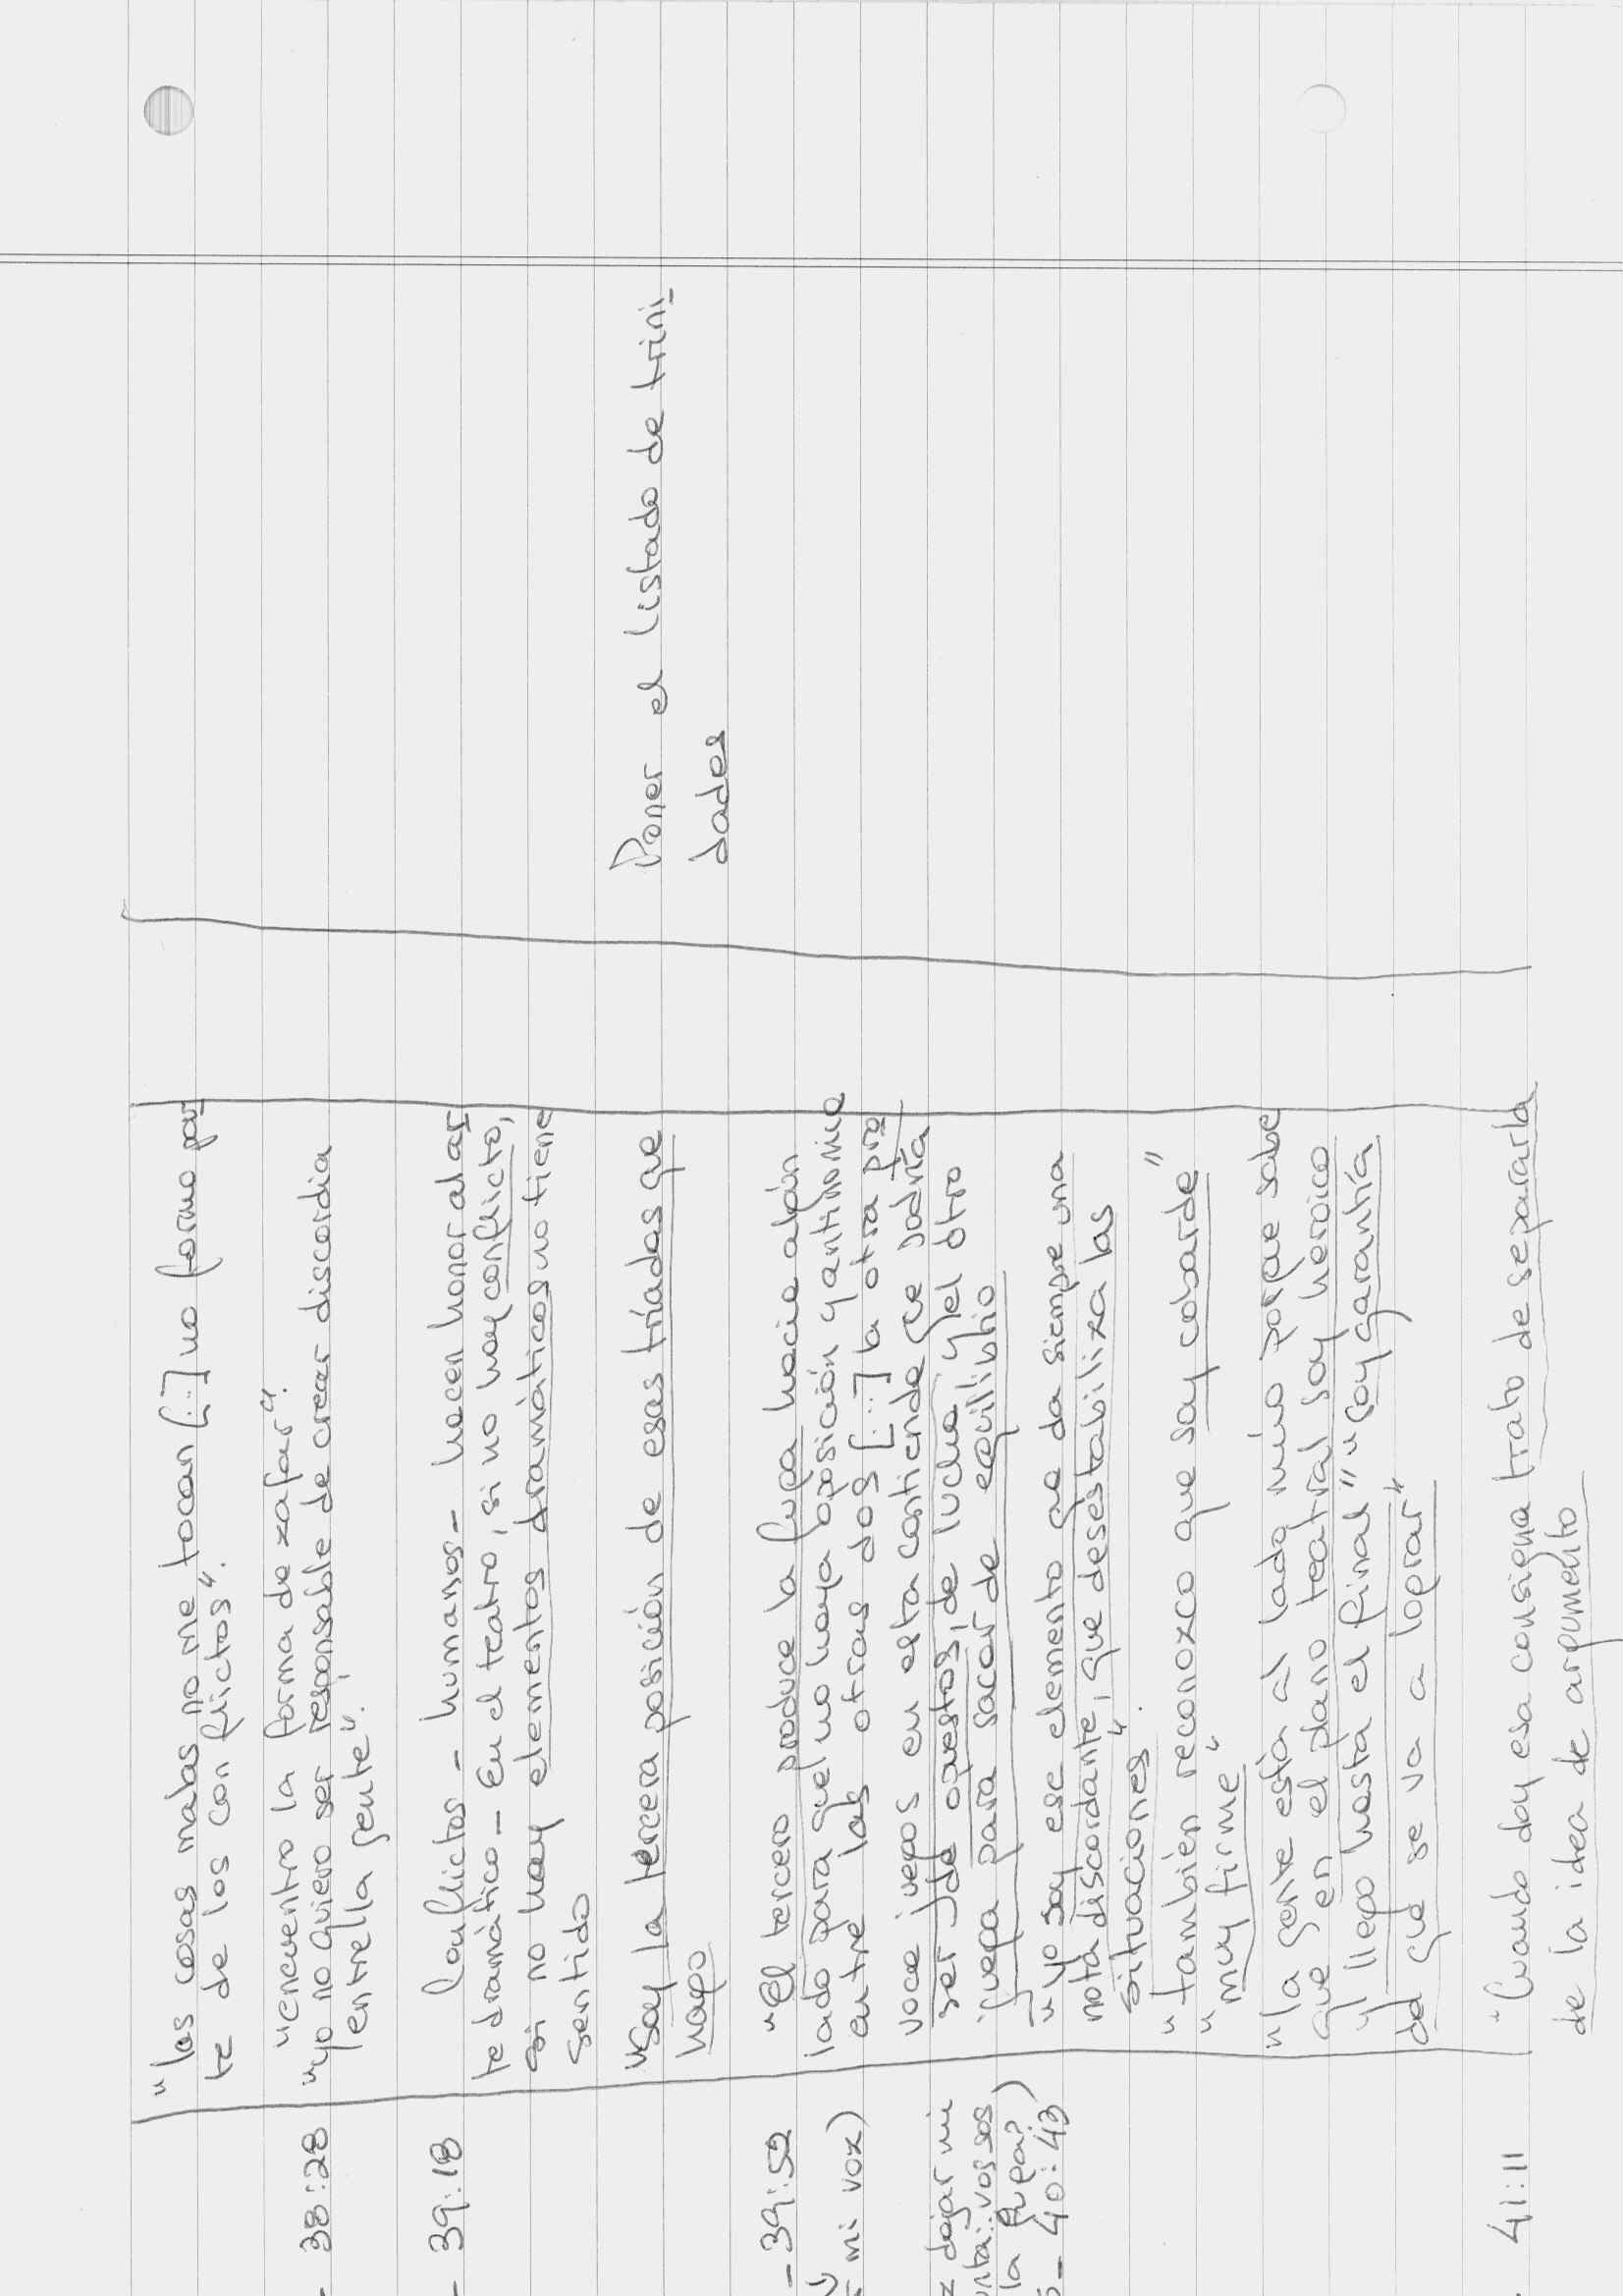 "las cosas malas no me tocan [...] no formo par
te de los conflictos".
"encuentro la forma de zafar".
- 38:28 "yo no quiero ser responsable de crear discordia
entre la gente".
- 39:18 Conflictos - humanos - hacen honor al ar
te dramático - En el teatro, si no hay conflicto,
si no hay elementos dramáticos no tiene
sentido
"Soy la tercera posición de esas tríadas que
hago
- 39:52 "El tercero produce la fuga hacia algún
lado para que no haya oposición y antinomia
mi voz) entre las otras dos [...] la otra pro
voca juegos en esta contienda que podría
dejar mi ser de opuestos, de lucha y el otro
vos sos juega para sacar de equilibrio
la fuga?)
- 40:43 "yo soy ese elemento que da siempre una
nota discordante, que desestabiliza las
situaciones".
"también reconozco que soy cobarde"
"muy firme"
"la gente está al lado mío porque sabe
que en el plano teatral soy heroico
y llego hasta el final" "soy garantía
de que se va a lograr"
41:11 "Cuando doy esa consigna trato de separarla
de la idea de argumento
Poner el listado de trini
dades